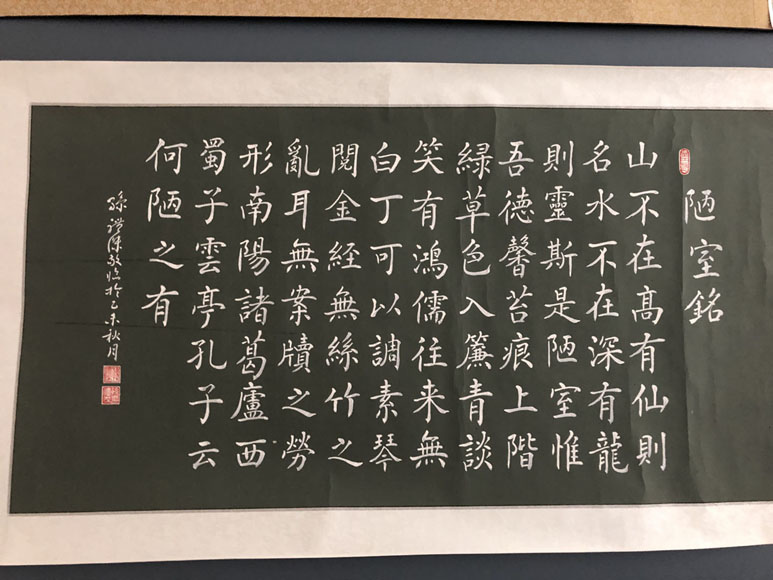 陋室銘
山不在髙有仙則
名水不在深有龍
則靈斯是陋室惟
吾德馨苔痕上階
緑草色入簾青談
笑有鴻儒往来無
白丁可以調素琴
閱金経無絲竹之
亂耳無案牘之勞
形南陽諸葛廬西
蜀子雲亭孔子云
何陋之有
孫敬臨於乙未秋月